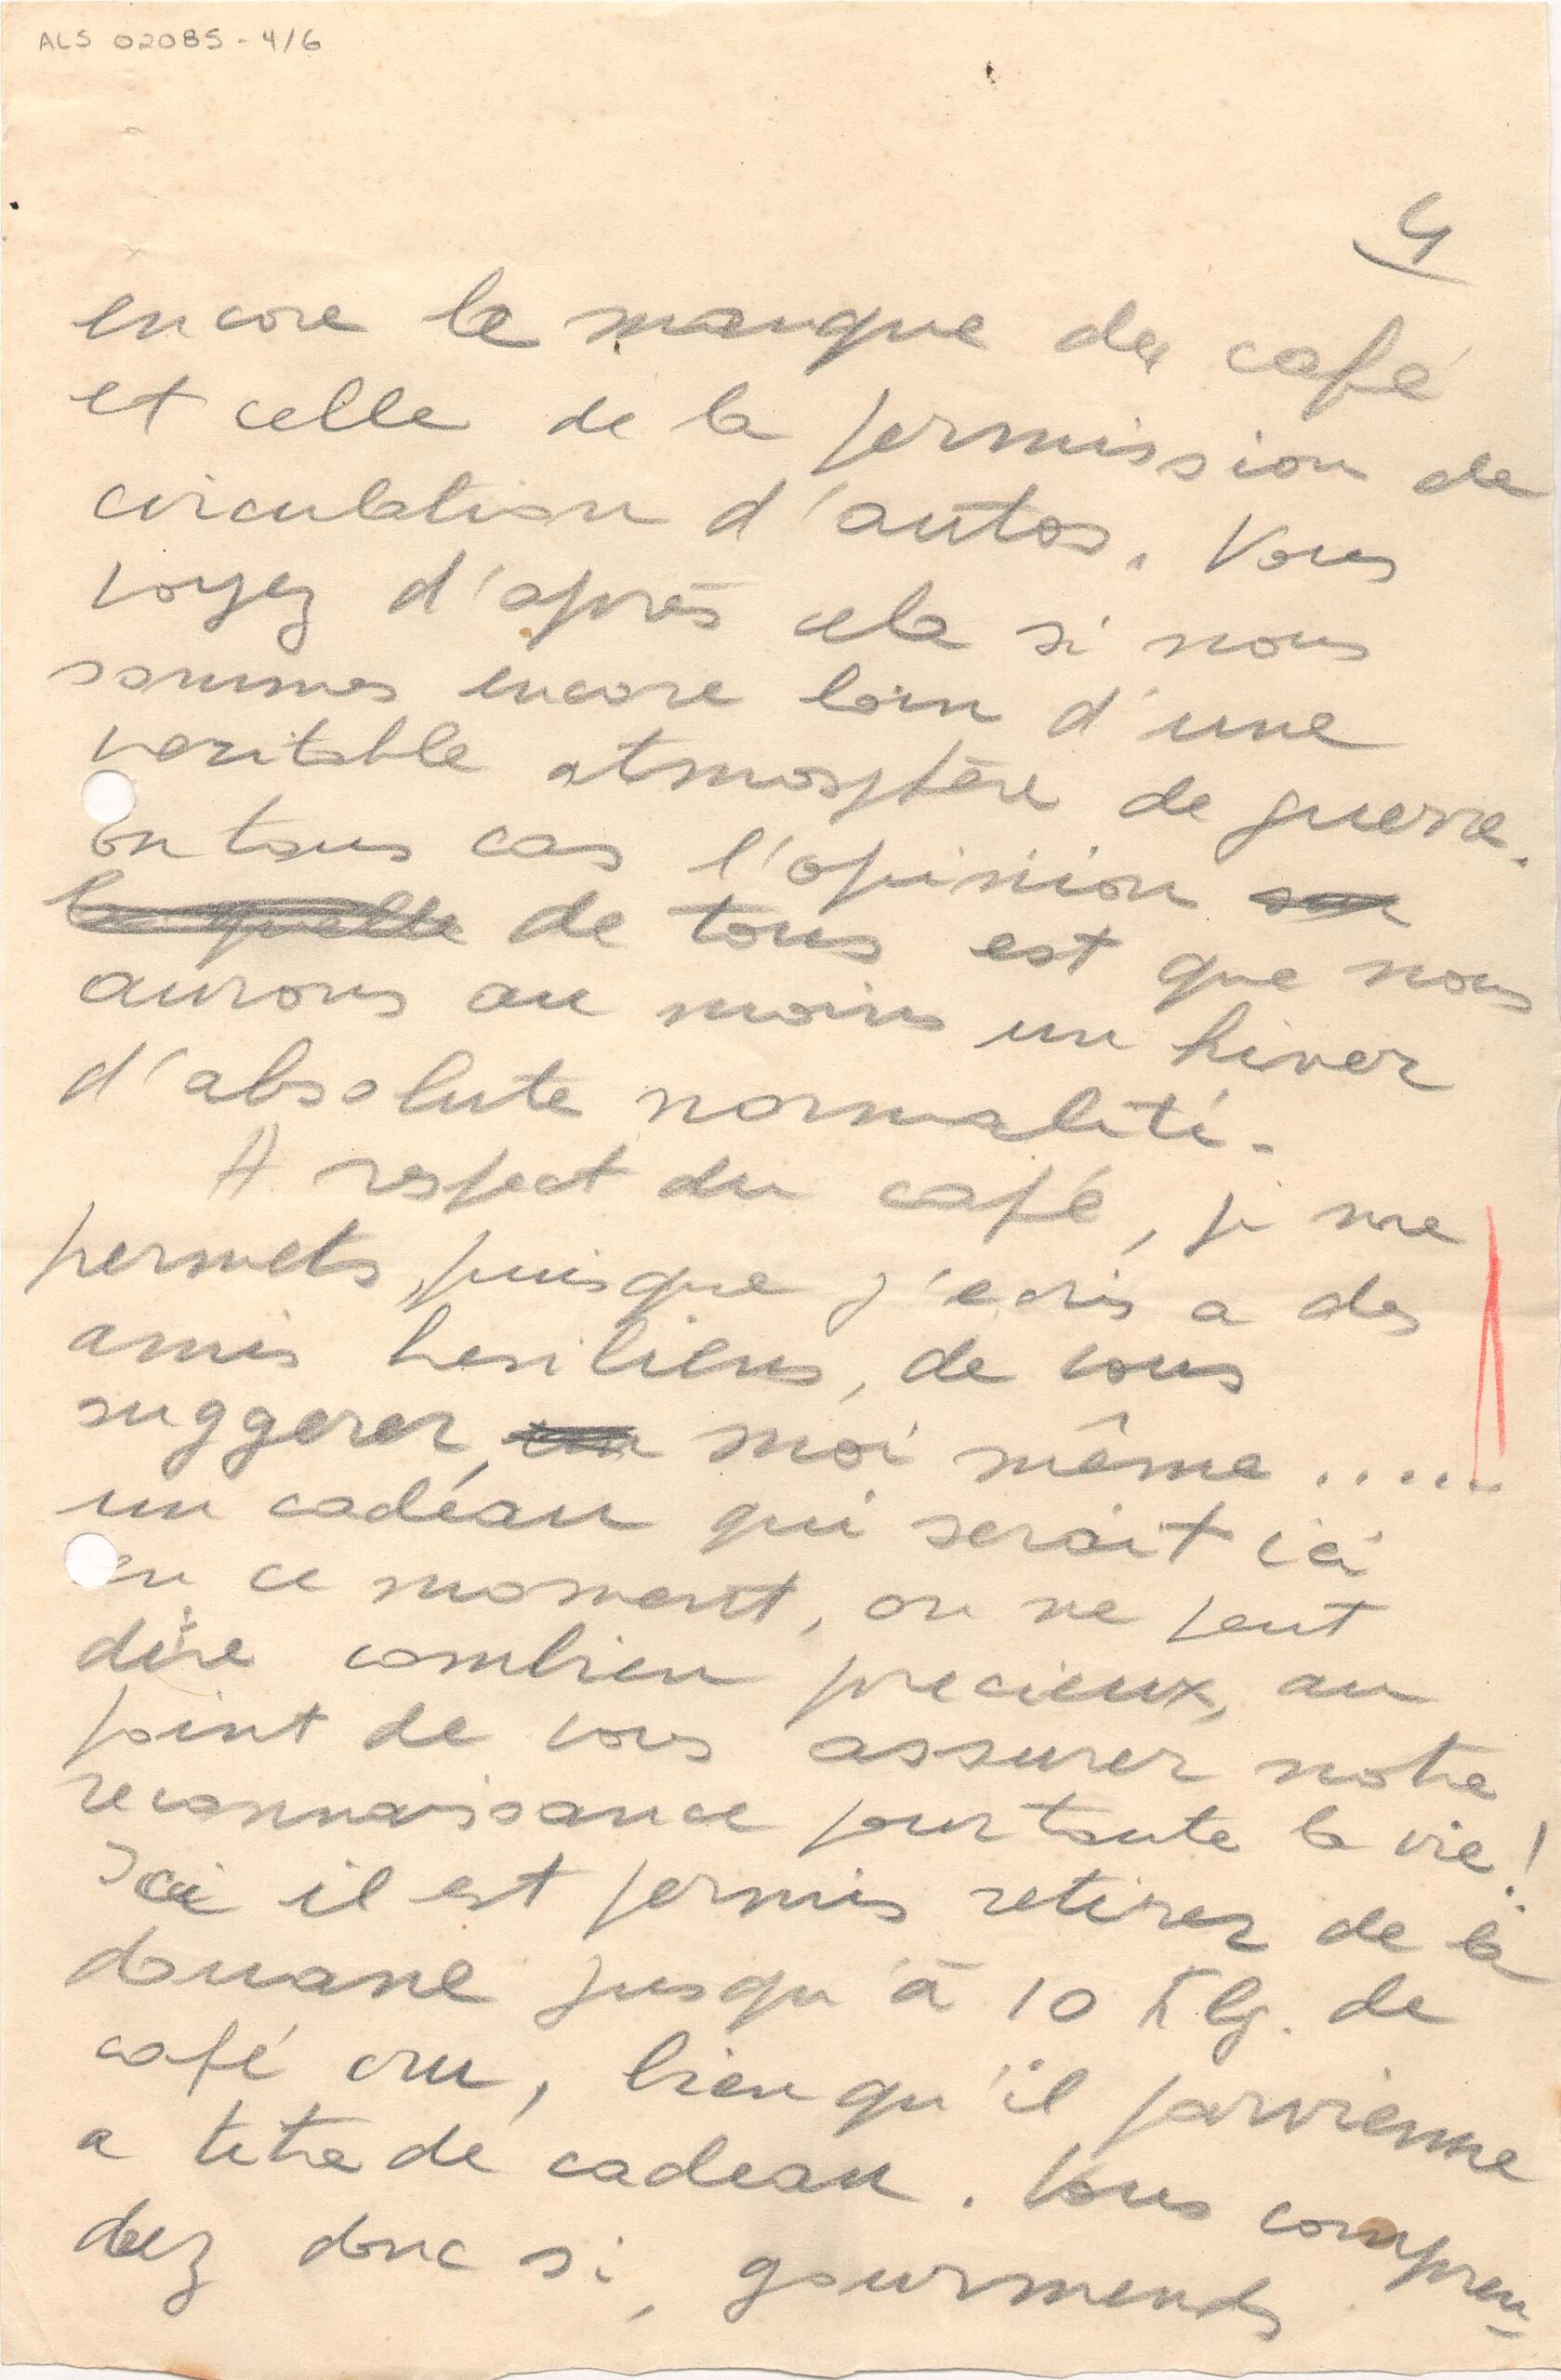 ALS 02085-4/6
4
encore le manque du café
et celle de la permission de
circulation d'autos. Vous
voyez d'après cela si nous
sommes encore loin d'une
veritable atmosphère de guerre.
En tous cas l'opinion
de tous est que nous
aurons au moins un hiver
d'absolute normalité.
A respect du café, je me
permets, puisque j'ecris a des
amis bresiliens, de vous
suggerer, moi même .....
un cadéau qui serait ici
en ce moment, on ne peut
dire combien precieux, au
point de vous assurer notre
reconnaissance pour toute la vie!
Ici il est permis retirer de la
douane jusqu'à 10 Klg. de
café cru, bien qu'il parvienne
a titre de cadeau. Vous compren-
dez donc si, gourmends